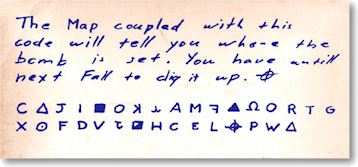 The Map coupled with this
code will tell you who-e the
bomb is set. You have untill
next Fall to dig it up. ⌖
C Δ J I ■ O ꓘ ʇ A M ꟻ ▲ Ω O R T G
X ⊙ F D V ㄟ ◪ H C E L ⌖ P W Δ